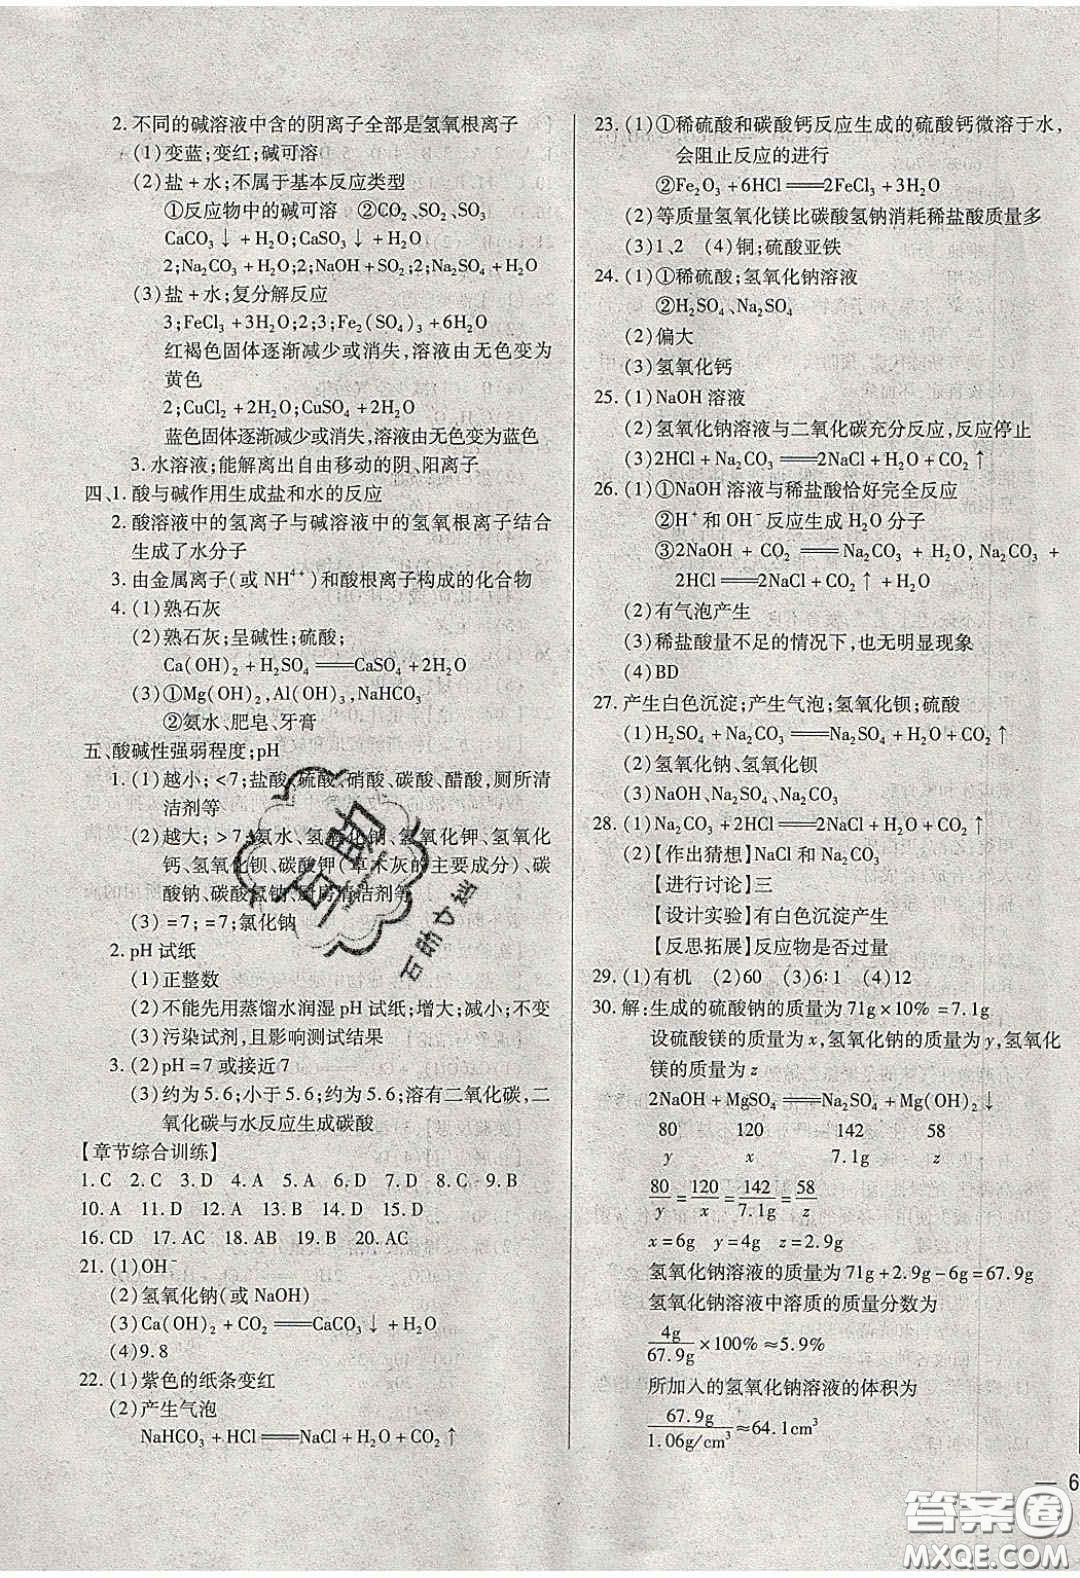 2. 不同的碱溶液中含的阴离子全部是氢氧根离子
(1)变蓝;变红;碱可溶
(2)盐+水;不属于基本反应类型
①反应物中的碱可溶 ②CO₂、SO₂、SO₃
CaCO₃↓+H₂O;CaSO₃↓+H₂O
2;Na₂CO₃+H₂O;2NaOH+SO₂;2;Na₂SO₄+H₂O
(3)盐+水;复分解反应
3;FeCl₃+3H₂O;2;3;Fe₂(SO₄)₃+6H₂O
红褐色固体逐渐减少或消失,溶液由无色变为
黄色
2;CuCl₂+2H₂O;CuSO₄+2H₂O
蓝色固体逐渐减少或消失,溶液由无色变为蓝色
3. 水溶液;能解离出自由移动的阴、阳离子
四、1. 酸与碱作用生成盐和水的反应
2. 酸溶液中的氢离子与碱溶液中的氢氧根离子结合
生成了水分子
3. 由金属离子(或 NH⁴⁺)和酸根离子构成的化合物
4. (1)熟石灰
(2)熟石灰;呈碱性;硫酸;
Ca(OH)₂+H₂SO₄══CaSO₄+2H₂O
(3)①Mg(OH)₂,Al(OH)₃,NaHCO₃
②氨水、肥皂、牙膏
五、酸碱性强弱程度;pH
1. (1)越小;<7;盐酸、硫酸、硝酸、碳酸、醋酸,厕所清
洁剂等
(2)越大;>7;氨水、氢氧化钠、氢氧化钾、氢氧化
钙、氢氧化钡、碳酸钾(草木灰的主要成分)、碳
酸钠、碳酸氢钠、厨房清洁剂等
(3)=7;=7;氯化钠
2. pH 试纸
(1)正整数
(2)不能先用蒸馏水润湿 pH 试纸;增大;减小;不变
(3)污染试剂,且影响测试结果
3. (2)pH=7 或接近 7
(3)约为 5.6;小于 5.6;约为 5.6;溶有二氧化碳,二
氧化碳与水反应生成碳酸
【章节综合训练】
1. C 2. C 3. D 4. A 5. A 6. D 7. D 8. C 9. B
10. A 11. D 12. B 13. B 14. D 15. D
16. CD 17. AC 18. AB 19. B 20. AC
21. (1)OH⁻
(2)氢氧化钠(或 NaOH)
(3)Ca(OH)₂+CO₂══CaCO₃↓+H₂O
(4)9.8
22. (1)紫色的纸条变红
(2)产生气泡
NaHCO₃+HCl══NaCl+H₂O+CO₂↑
23. (1)①稀硫酸和碳酸钙反应生成的硫酸钙微溶于水,
会阻止反应的进行
②Fe₂O₃+6HCl══2FeCl₃+3H₂O
(2)等质量氢氧化镁比碳酸氢钠消耗稀盐酸质量多
(3)1、2 (4)铜;硫酸亚铁
24. (1)①稀硫酸;氢氧化钠溶液
②H₂SO₄、Na₂SO₄
(2)偏大
(3)氢氧化钙
25. (1)NaOH 溶液
(2)氢氧化钠溶液与二氧化碳充分反应,反应停止
(3)2HCl+Na₂CO₃══2NaCl+H₂O+CO₂↑
26. (1)①NaOH 溶液与稀盐酸恰好完全反应
②H⁺和 OH⁻反应生成 H₂O 分子
③2NaOH + CO₂══Na₂CO₃ + H₂O, Na₂CO₃ +
2HCl══2NaCl+CO₂↑+H₂O
(2)有气泡产生
(3)稀盐酸量不足的情况下,也无明显现象
(4)BD
27. 产生白色沉淀;产生气泡;氢氧化钡;硫酸
(1)H₂SO₄+Na₂CO₃══Na₂SO₄+H₂O+CO₂↑
(2)氢氧化钠、氢氧化钡
(3)NaOH、Na₂SO₄、Na₂CO₃
28. (1)Na₂CO₃+2HCl══2NaCl+H₂O+CO₂↑
(2)【作出猜想】NaCl 和 Na₂CO₃
【进行讨论】三
【设计实验】有白色沉淀产生
【反思拓展】反应物是否过量
29. (1)有机 (2)60 (3)6:1 (4)12
30. 解:生成的硫酸钠的质量为 71g×10%=7.1g
设硫酸镁的质量为 x,氢氧化钠的质量为 y,氢氧化
镁的质量为 z
2NaOH+MgSO₄══Na₂SO₄+Mg(OH)₂↓
80 120 142 58
y x 7.1g z
80/y=120/x=142/7.1g=58/z
x=6g y=4g z=2.9g
氢氧化钠溶液的质量为 71g+2.9g-6g=67.9g
氢氧化钠溶液中溶质的质量分数为
4g/67.9g×100%≈5.9%
所加入的氢氧化钠溶液的体积为
67.9g/1.06g/cm³≈64.1cm³
— 6
答案圈
MXQE.COM